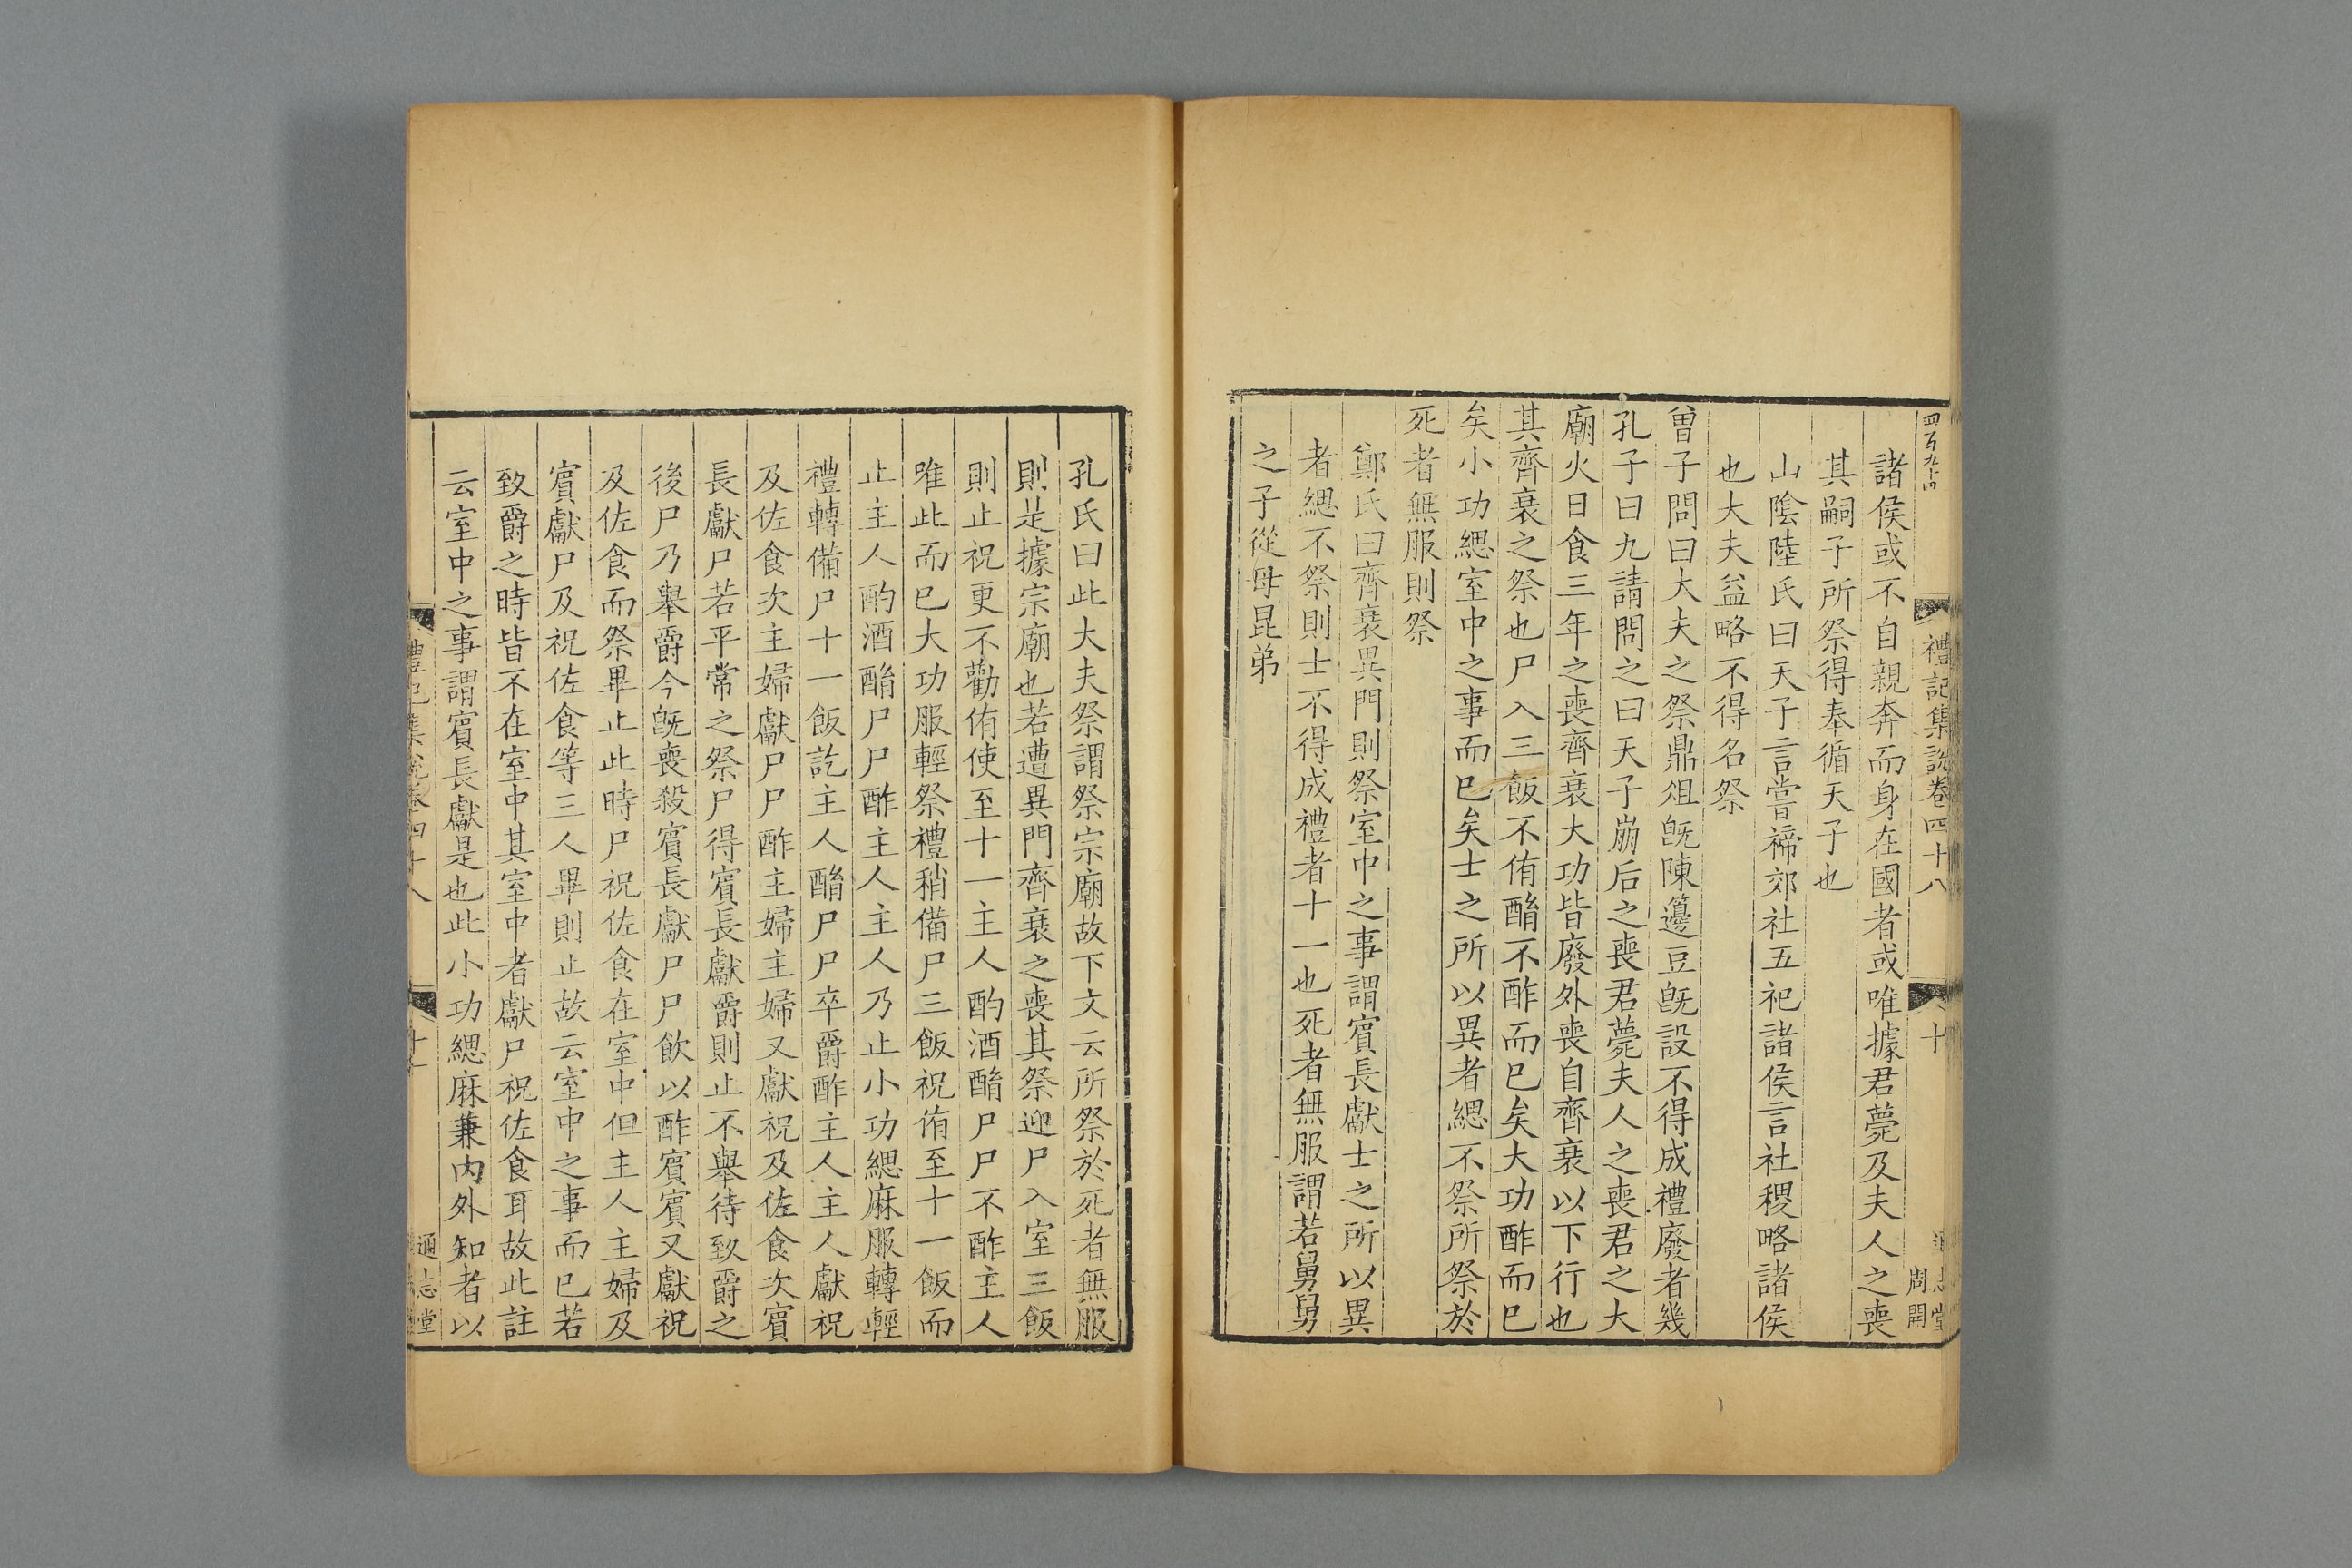 四百九十四
禮記集說卷四十八
十
通志堂
周開
諸侯或不自親奔而身在國者或唯據君薨及夫人之喪
其嗣子所祭得奉循天子也
山陰陸氏曰天子言嘗禘郊社五祀諸侯言社稷略諸侯
也大夫益略不得名祭
曾子問曰大夫之祭鼎俎旣陳籩豆旣設不得成禮廢者幾
孔子曰九請問之曰天子崩后之喪君薨夫人之喪君之大
廟火日食三年之喪齊衰大功皆廢外喪自齊衰以下行也
其齊衰之祭也尸入三飯不侑酳不酢而已矣大功酢而已
矣小功緦室中之事而已矣士之所以異者緦不祭所祭於
死者無服則祭
鄭氏曰齊衰異門則祭室中之事謂賓長獻士之所以異
者緦不祭則士不得成禮者十一也死者無服謂若舅舅
之子從母昆弟
孔氏曰此大夫祭謂祭宗廟故下文云所祭於死者無服
則是據宗廟也若遭異門齊衰之喪其祭迎尸入室三飯
則止祝更不勸侑使至十一主人酌酒酳尸尸不酢主人
唯此而已大功服輕祭禮稍備尸三飯祝侑至十一飯而
止主人酌酒酳尸尸酢主人主人乃止小功緦麻服轉輕
禮轉備尸十一飯訖主人酳尸尸卒爵酢主人主人獻祝
及佐食次主婦獻尸尸酢主婦主婦又獻祝及佐食次賓
長獻尸若平常之祭尸得賓長獻爵則止不舉待致爵之
後尸乃舉爵今旣喪殺賓長獻尸尸飲以酢賓賓又獻祝
及佐食而祭畢止此時尸祝佐食在室中但主人主婦及
賓獻尸及祝佐食等三人畢則止故云室中之事而已若
致爵之時皆不在室中其室中者獻尸祝佐食耳故此註
云室中之事謂賓長獻是也此小功緦麻兼內外知者以
禮記集說卷四十八
通志堂